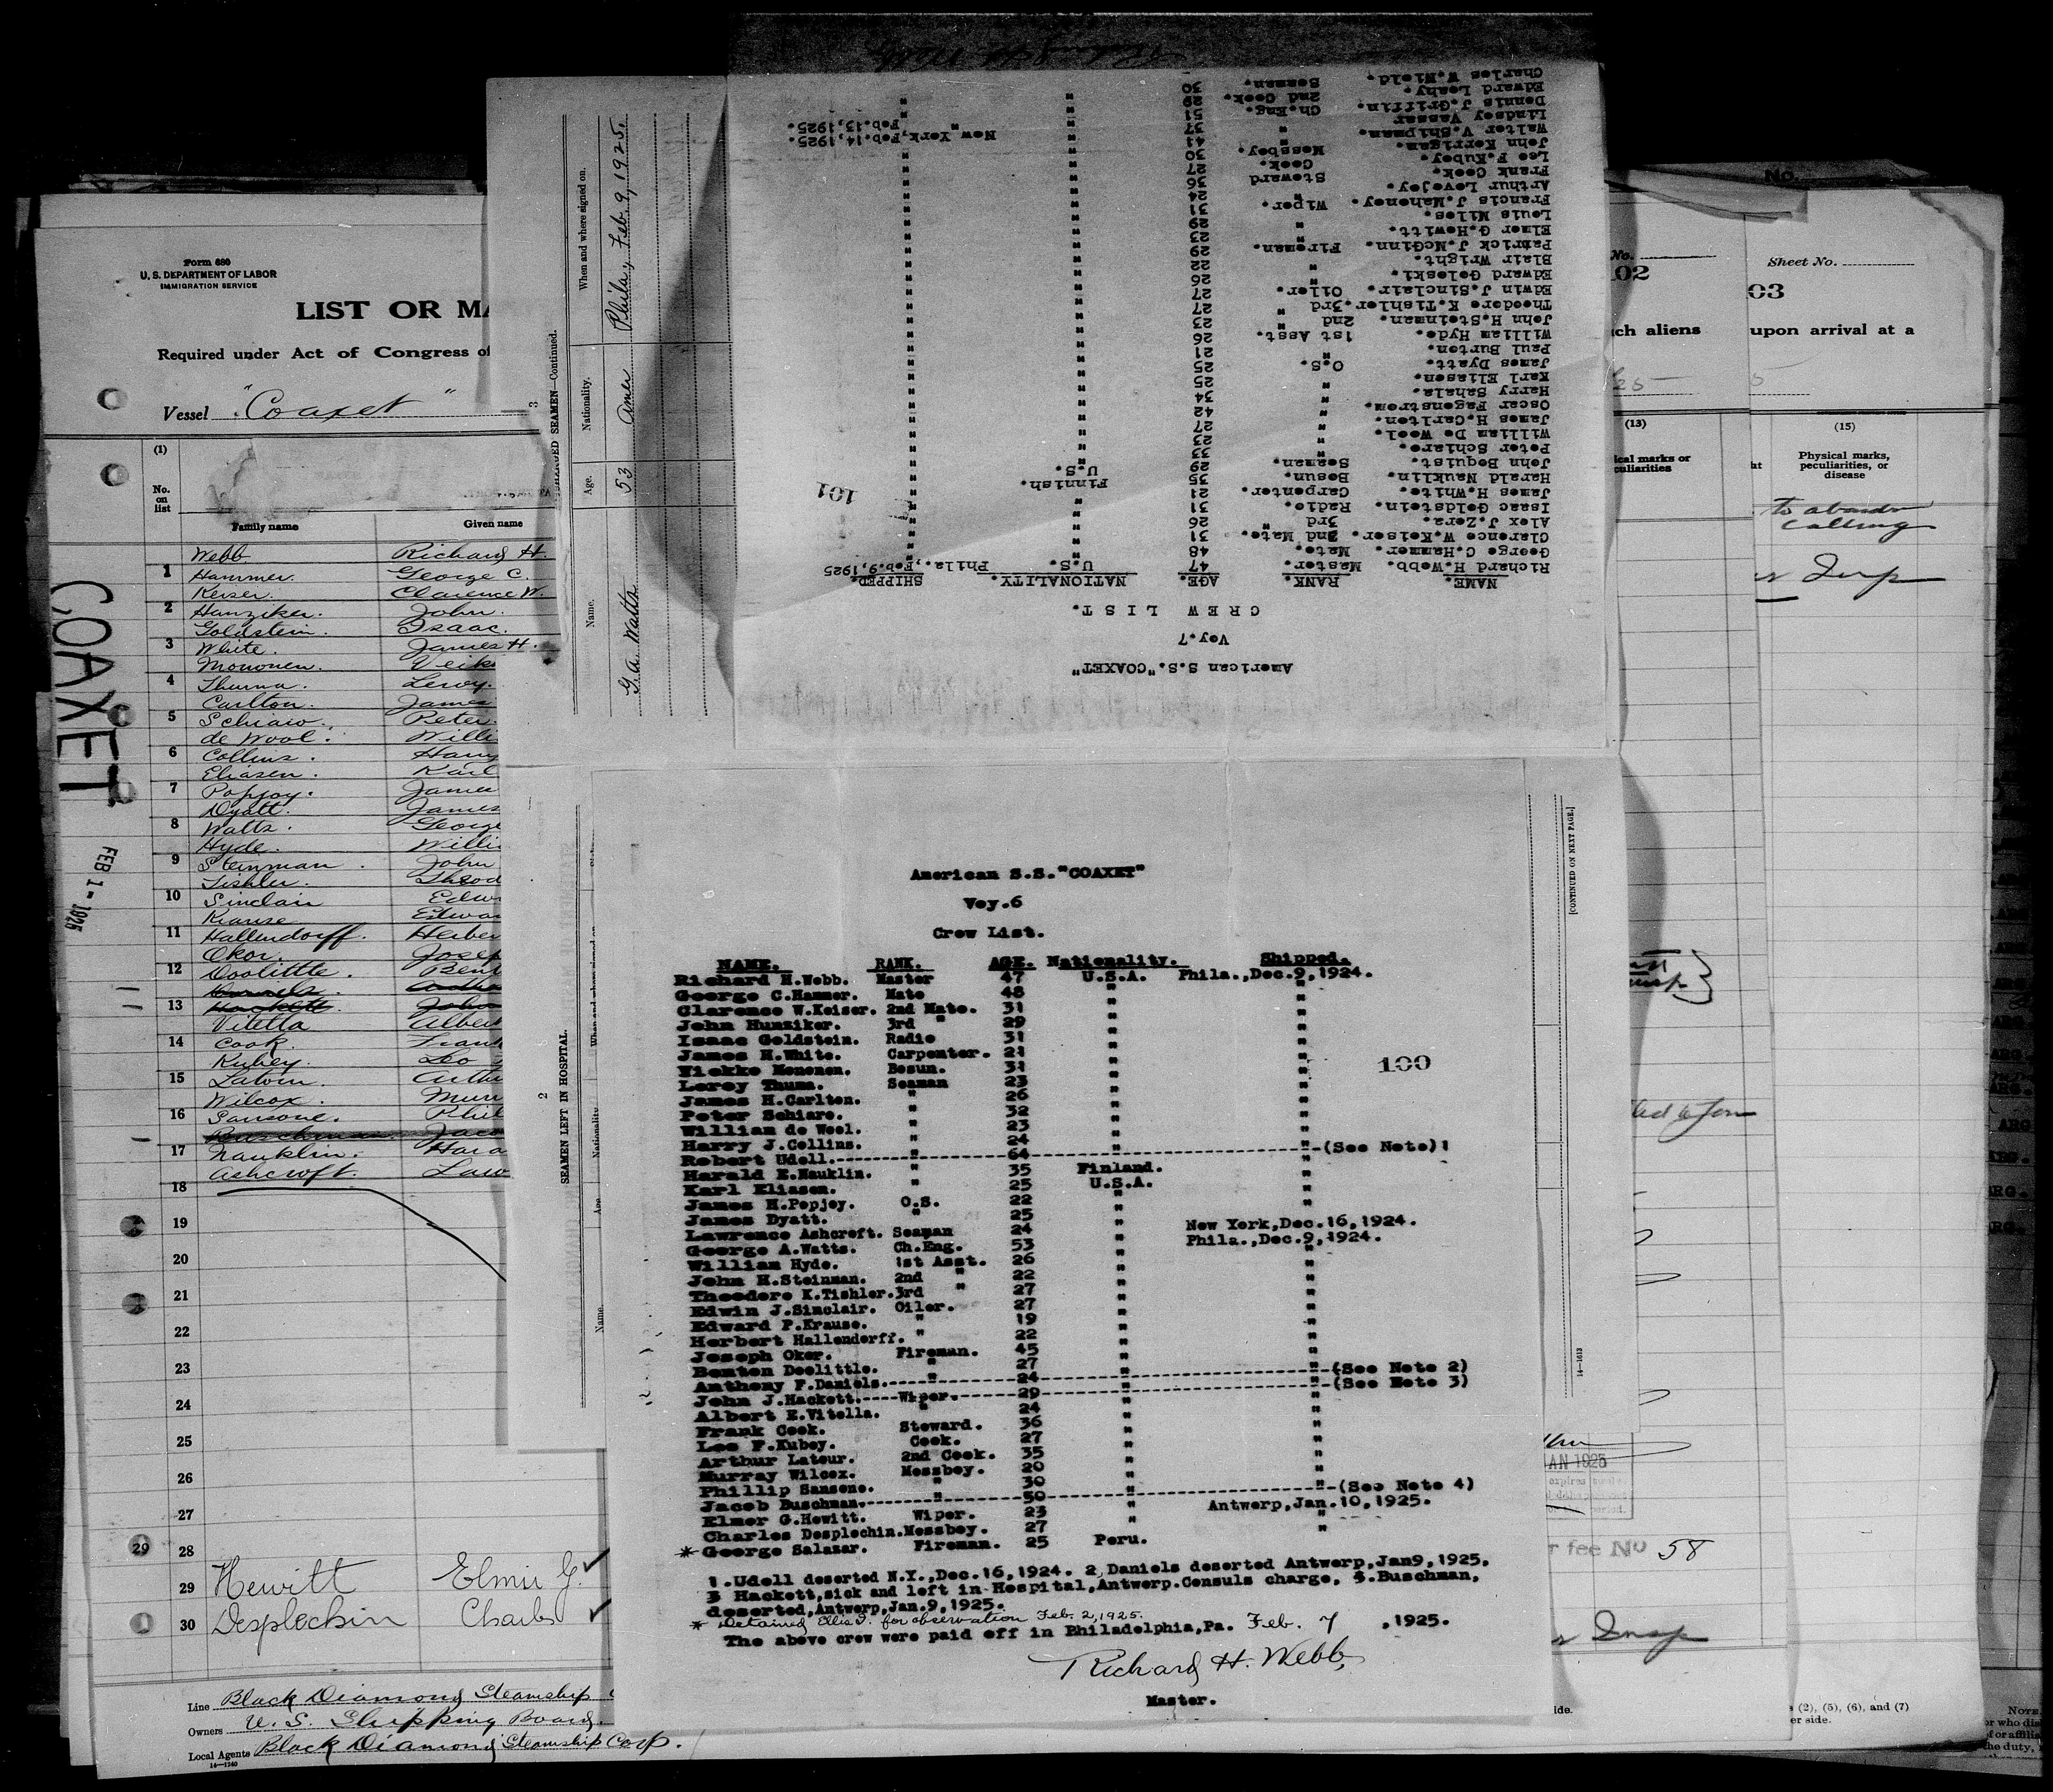 Form 680
U. S. DEPARTMENT OF LABOR
IMMIGRATION SERVICE
LIST OR MA
Required under Act of Congress of
Vessel "Coaxet"
(1)
No. on list
Family name Given name
Webb Richard H.
1 Hammer. George C.
Keiser. Clarence W.
2 Hunziker. John.
Goldstein. Isaac.
3 White. James H.
Mononen. Veik
4 Thuma. Leroy.
Carlton. James
5 Schiaro. Peter.
de Wool. Willi
6 Collins. Harry
Eliasen. Karl
7 Popjoy. James
Dyatt. James
8 Watts. George
Hyde. Willi
9 Steinman. John
Tishler. Theod
10 Sinclair Edwi
Krause Edwar
11 Hallendorff. Herber
Okor. Josep
12 Doolittle. Bent
Daniels.
13 Hackett. John
Vitella Albert
14 Cook. Frank
Kubey. Leo
15 Latour. Arthu
Wilcox. Murr
16 Sansone. Phil
Buschman Jaco
17 Nauklin. Hara
Ashcroft. Law
18
19
20
21
22
23
24
25
26
27
28
29 Hewitt Elmer G.
30 Desplechin Charles
29
Line Black Diamond Steamship
Owners U. S. Shipping Board.
Local Agents Black Diamond Steamship Corp.
14—1740
COAXET
FEB 1- 1925
3
DISCHARGED SEAMEN—Continued.
Name. Age. Nationality. When and where signed on.
G. A. Watts 53 Amer Phila, Feb. 9, 1925.
American S.S. "COAXET"
Voy.7
CREW LIST.
NAME. RANK. AGE. NATIONALITY. SHIPPED.
Richard H.Webb. Master. 47 U.S Phila.,Feb.9,1925
George C.Hammer. Mate. 48 " "
Clarence W.Keiser. 2nd Mate. 31 " "
Alex J.Zera. 3rd " 26 " "
Isaac Goldstein. Radio. 31 " "
James H.White. Carpenter. 21 " "
Harald Nauklin. Bosun. 35 Finnish. "
John Bequist. Seaman. 29 U.S. "
Peter Schiaro. " 33 " "
William De Wool. " 23 " "
James H.Carlton. " 27 " "
Oscar Fagenstrom. " 42 " "
Harry Sahala. " 34 " "
Karl Eliasen. " 25 " "
James Dyatt. O.S. 25 " "
Paul Burton. " 21 " "
William Hyde. 1st Asst. 26 " "
John H.Steinman. 2nd " 23 " "
Theodore K.Tishler. 3rd " 27 " "
Edwin J.Sinclair. Oiler. 27 " "
Edward Goleski. " 26 " "
Blair Wright. " 22 " "
Patrick J.McGinn. Fireman. 29 " "
Elmer G.Hewitt. " 23 " "
Louis Miles. " 29 " "
Francis J.Mahoney. Wiper. 31 " "
Arthur Lovejoy. " 24 " "
Frank Cook. Steward 36 " "
Leo F.Kubey. Cook. 27 " "
John Kerrigan. Messboy. 30 " "
Walter V.Shipman. " 41 " New York,Feb.14,1925.
Lindsey Vassar " 37 " " Feb.13,1925.
Dennis J.Griffin. Ch.Eng. 51 " "
Edward Leahy. 2nd Cook. 29 " "
Charles W.Nield. Seaman. 30 " "
101
2
SEAMEN LEFT IN HOSPITAL.
Name. Age Nationality When and where signed on
[CONTINUED ON NEXT PAGE.]
14—1613
American S.S."COAXET"
Voy.6
Crew List.
NAME. RANK. AGE. Nationality. Shipped.
Richard H.Webb. Master 47 U.S.A. Phila.,Dec.9,1924.
George C.Hammer. Mate 48 " "
Clarence W.Keiser. 2nd Mate. 31 " "
John Hunziker. 3rd " 29 " "
Isaac Goldstein. Radio 31 " "
James H.White. Carpenter. 21 " "
Viekko Mononen. Bosun. 31 " "
Leroy Thuma. Seaman 23 " "
James H.Carlton. " 26 " "
Peter Schiaro. " 32 " "
William de Wool. " 23 " "
Harry J.Collins. " 24 " "
Robert Udell.---" 64 " "-(See Note)1
Harald E.Nauklin. " 35 Finland. "
Karl Eliasen. " 25 U.S.A. "
James H.Popjoy. O.S. 22 " "
James Dyatt. " 25 " "
Lawrence Ashcroft. Seaman 24 " New York,Dec.16,1924.
George A.Watts. Ch.Eng. 53 " Phila.,Dec.9,1924.
William Hyde. 1st Asst. 26 " "
John H.Steinman. 2nd " 22 " "
Theodore K.Tishler.3rd " 27 " "
Edwin J.Sinclair. Oiler. 27 " "
Edward P.Krause. " 19 " "
Herbert Hallendorff. " 22 " "
Joseph Okor. Fireman. 45 " "
Benton Doolittle. " 27 " "
Anthony F.Daniels.---" 24 " "-(See Note 2)
John J.Hackett.----Wiper.---29 " "-(See Note 3)
Albert E.Vitella. " 24 " "
Frank Cook. Steward. 36 " "
Leo F.Kubey. Cook. 27 " "
Arthur Latour. 2nd Cook. 35 " "
Murray Wilcox. Messboy. 20 " "
Phillip Sansone. " 30 " "
Jacob Buschman.---" 50 " "-(See Note 4)
Elmer G.Hewitt. Wiper. 23 " Antwerp,Jan.10,1925.
Charles Desplechin.Messboy. 27 " "
*George Salazar. Fireman. 25 Peru. "
100
1.Udell deserted N.Y.,Dec.16,1924. 2,Daniels deserted Antwerp,Jan9,1925.
3 Hackett,sick and left in Hospital,Antwerp.Consuls charge, 4.Buschman,
deserted,Antwerp,Jan.9,1925.
* Detained Ellis I. for observation Feb. 2, 1925.
The above crew were paid off in Philadelphia,Pa. Feb. 7 ,1925.
Richard H. Webb,
Master.
No.
No.
02
ch aliens
(13)
cal marks or
culiarities
Sheet No.
03
upon arrival at a
(15)
Physical marks, peculiarities, or disease
to abandon
calling
Insp
JAN 1925
r fee No 58
Insp
ide.
(2), (5), (6), and (7)
er side.
NOTE